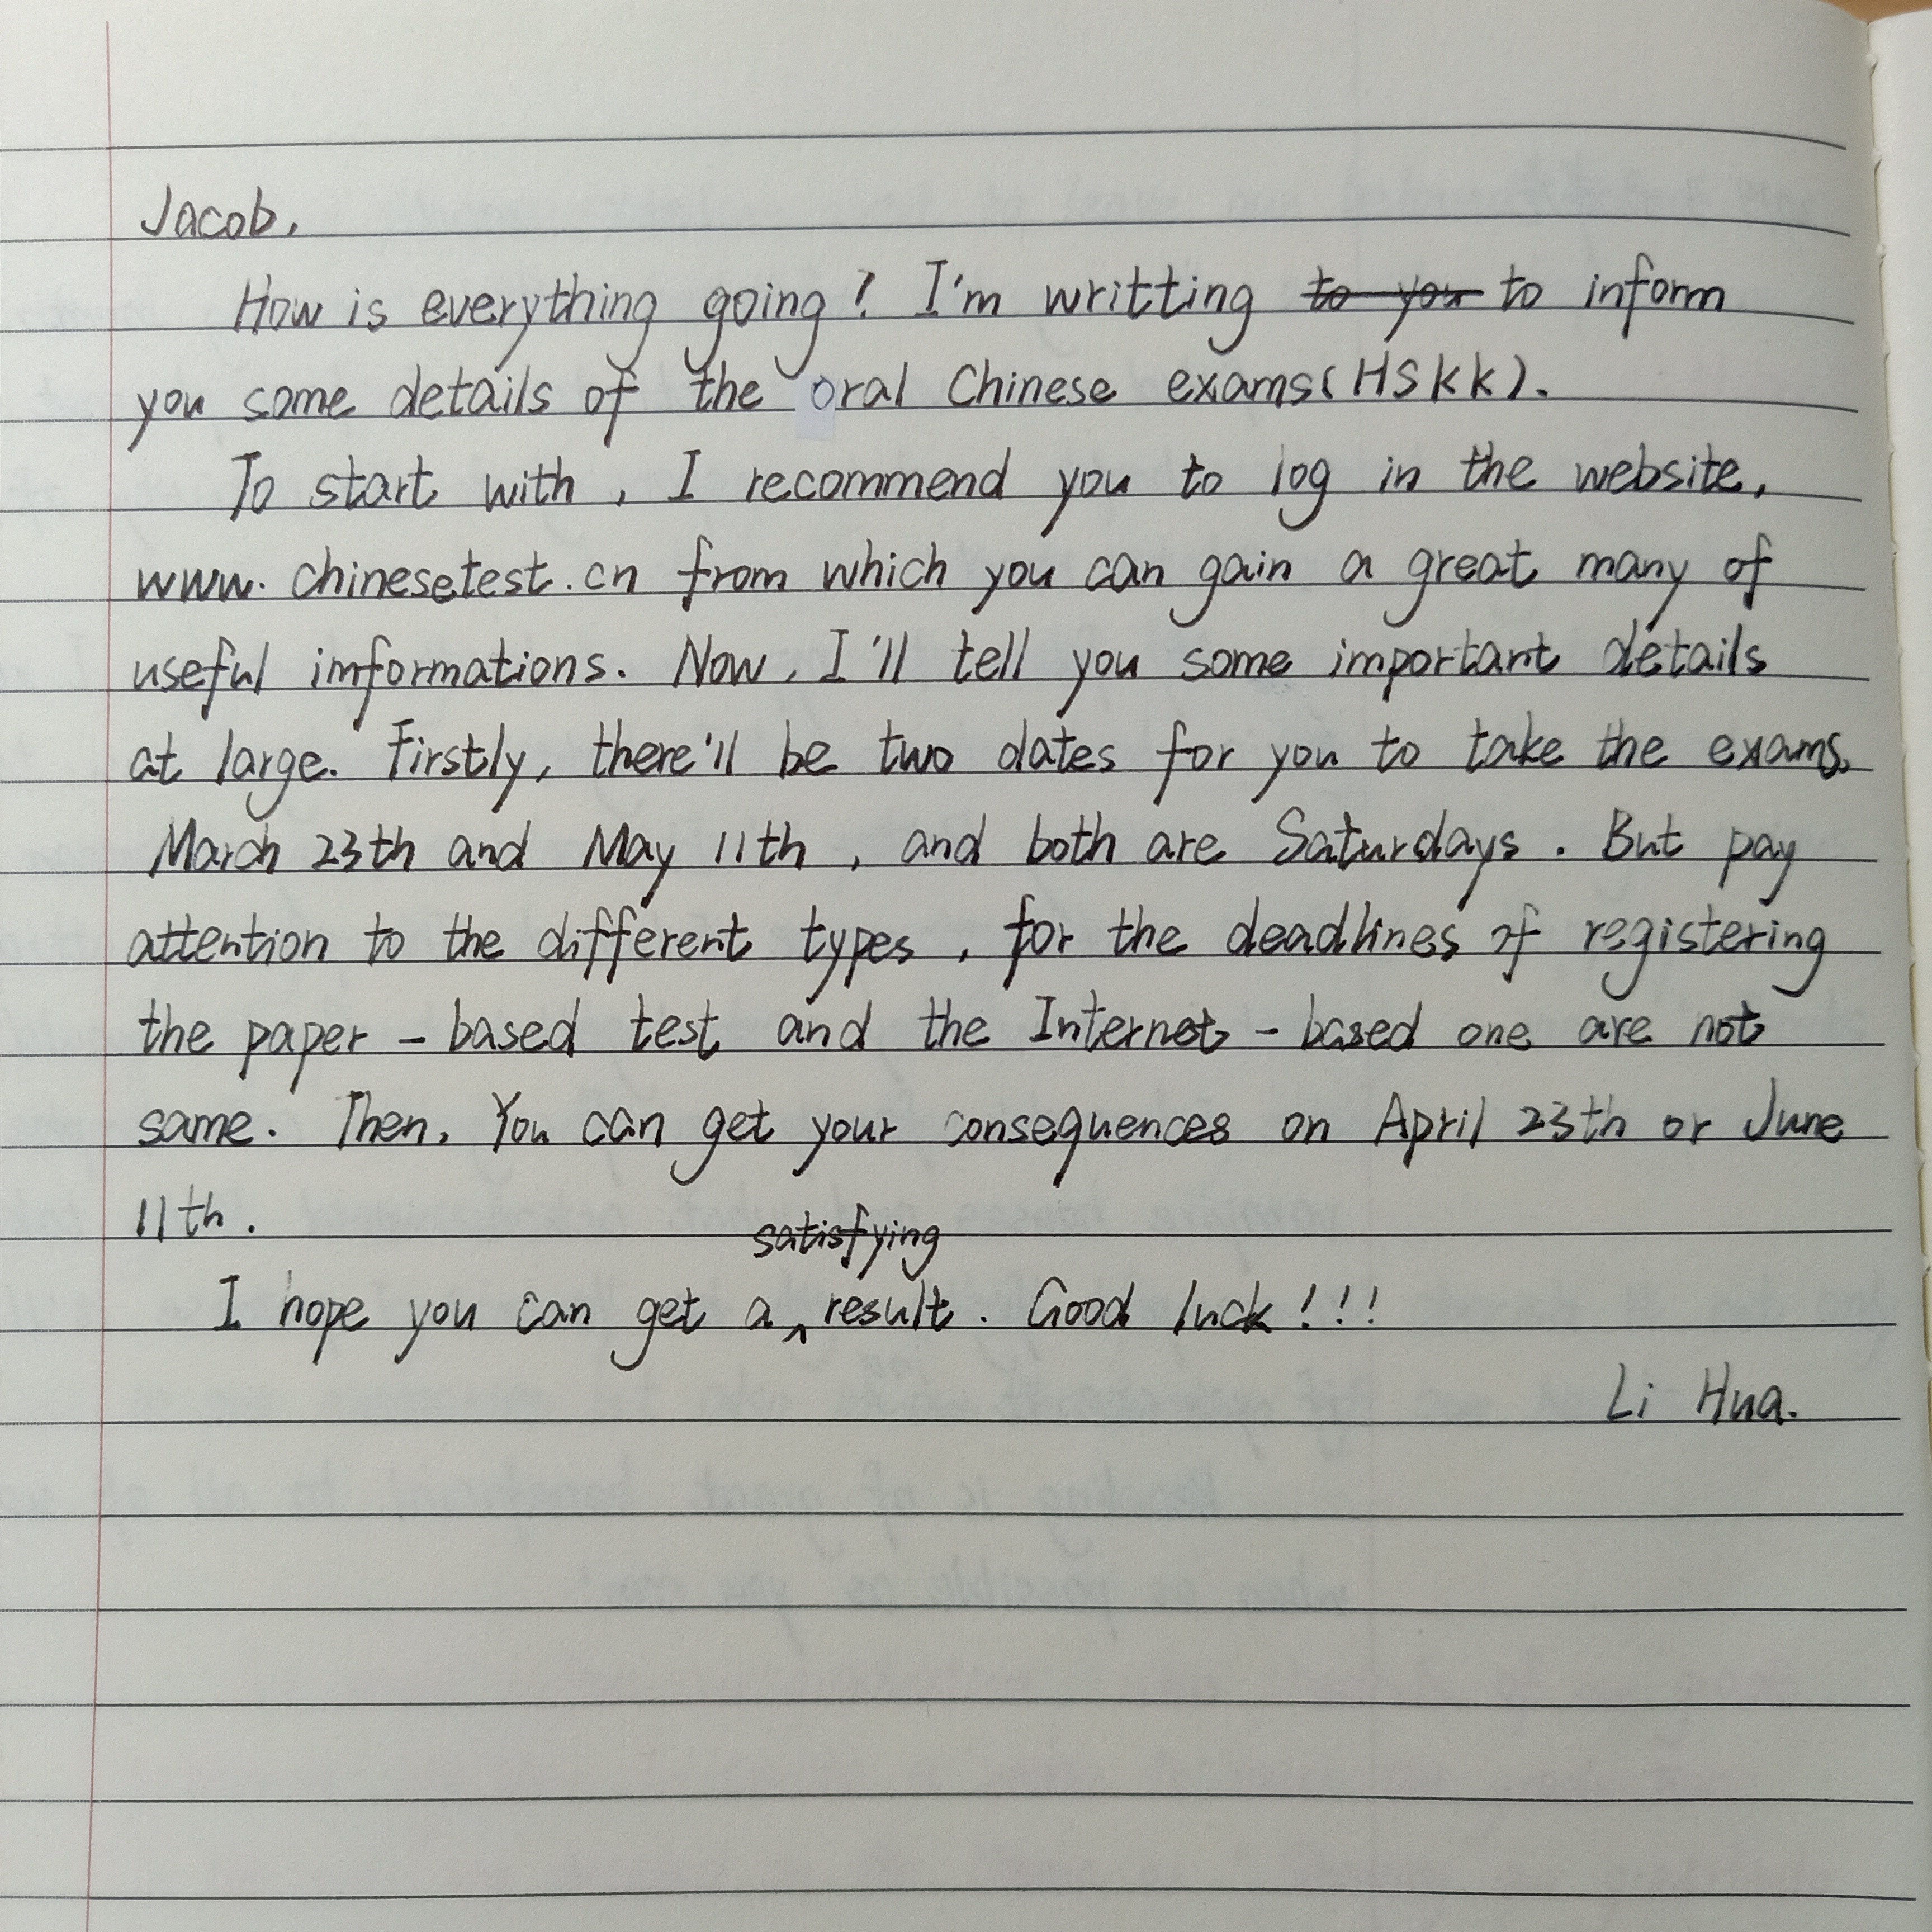 Jacob,
How is everything going? I'm writting to you to inform
you some details of the oral Chinese exams(HSKK).
To start with, I recommend you to log in the website,
www.chinesetest.cn from which you can gain a great many of
useful imformations. Now, I'll tell you some important details
at large. Firstly, there'll be two dates for you to take the exams,
March 23th and May 11th, and both are Saturdays. But pay
attention to the different types, for the deadlines of registering
the paper-based test and the Internet-based one are not
same. Then, You can get your consequences on April 23th or June
11th.
satisfying
I hope you can get a result. Good luck!!!
Li Hua.